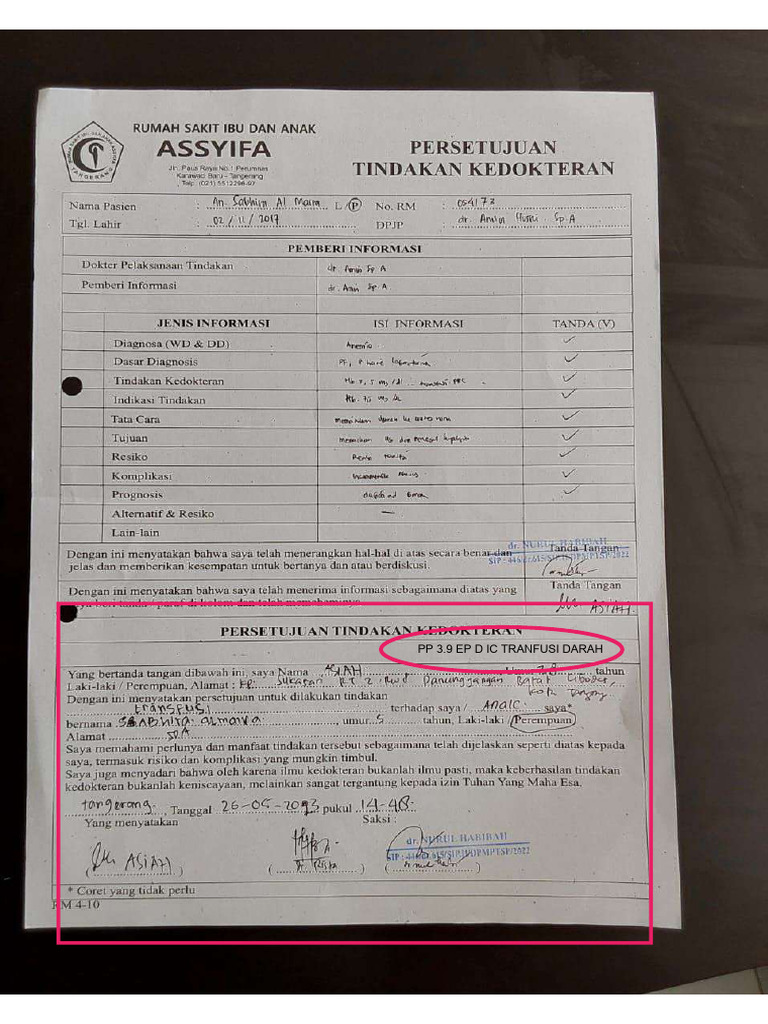 RUMAH SAKIT IBU DAN ANAK
ASSYIFA
Jln. Paus Raya No.1 Perumnas
Karawaci Baru - Tangerang
Telp. (021) 5512296-97
PERSETUJUAN
TINDAKAN KEDOKTERAN
Nama Pasien : An. Sabhira Al L/P No. RM : 054173
Tgl. Lahir : 02/11/2017 DPJP : dr. Sp.A
PEMBERI INFORMASI
Dokter Pelaksanaan Tindakan dr. Sp A
Pemberi Informasi dr. Sp A
JENIS INFORMASI ISI INFORMASI TANDA (V)
Diagnosa (WD & DD) Anemia ✓
Dasar Diagnosis PF, ✓
Tindakan Kedokteran transfusi PRC ✓
Indikasi Tindakan Hb. ✓
Tata Cara darah ke ✓
Tujuan ✓
Resiko ✓
Komplikasi ✓
Prognosis ✓
Alternatif & Resiko —
Lain-lain
Dengan ini menyatakan bahwa saya telah menerangkan hal-hal di atas secara benar dan
jelas dan memberikan kesempatan untuk bertanya dan atau berdiskusi.
dr. NURUL HABIBAH
Tanda Tangan
Dengan ini menyatakan bahwa saya telah menerima informasi sebagaimana diatas yang
saya beri tanda / paraf di kolom dan telah memahaminya.
Tanda Tangan
ASIAH
PERSETUJUAN TINDAKAN KEDOKTERAN
PP 3.9 EP D IC TRANFUSI DARAH
Yang bertanda tangan dibawah ini, saya Nama ASIAH tahun
Laki-laki / Perempuan, Alamat : Kp. Sukasari RT 2 Panunggangan Barat Cibodas
Kota
Dengan ini menyatakan persetujuan untuk dilakukan tindakan
transfusi terhadap saya / Anak saya*
bernama Sabhira almaira, umur 5 tahun, Laki-laki / Perempuan
Alamat SDA
Saya memahami perlunya dan manfaat tindakan tersebut sebagaimana telah dijelaskan seperti diatas kepada
saya, termasuk risiko dan komplikasi yang mungkin timbul.
Saya juga menyadari bahwa oleh karena ilmu kedokteran bukanlah ilmu pasti, maka keberhasilan tindakan
kedokteran bukanlah keniscayaan, melainkan sangat tergantung kepada izin Tuhan Yang Maha Esa.
tangerang, Tanggal 26-05-2023 pukul 14-48
Yang menyatakan Saksi :
dr. NURUL HABIBAH
ASIAH
* Coret yang tidak perlu
RM 4-10